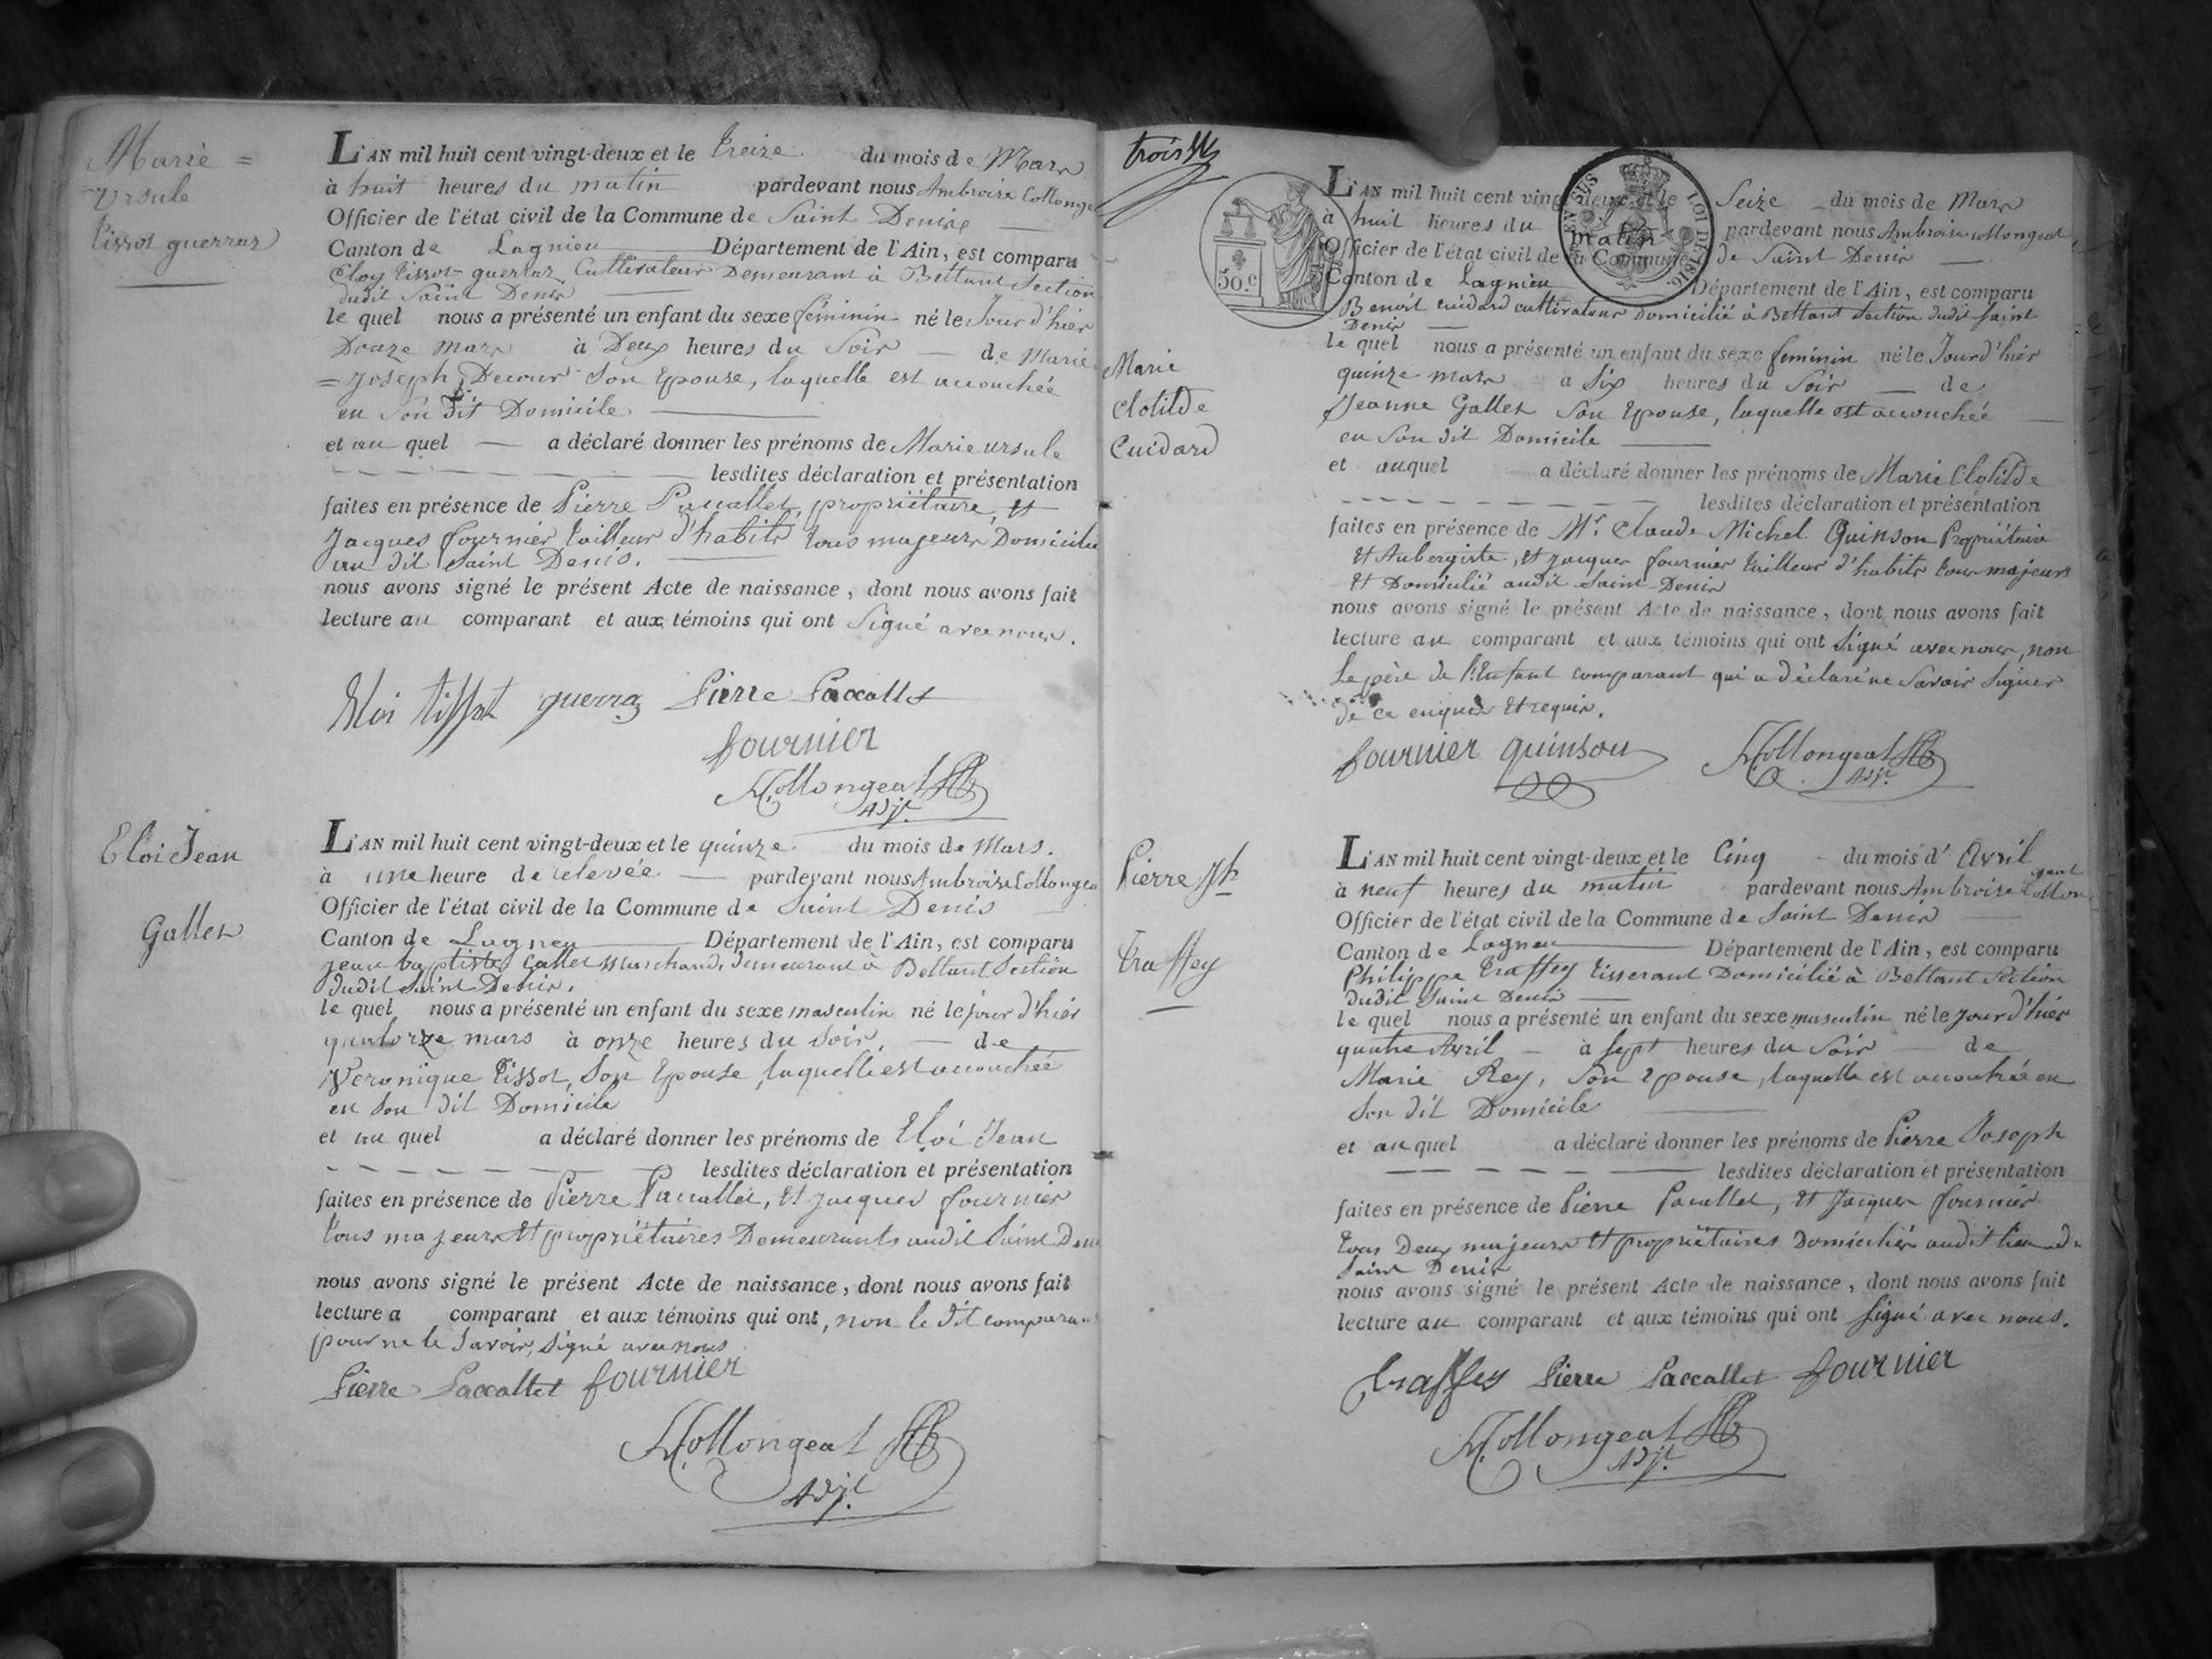 Marie =
Ursule
tissot guerraz
L'AN mil huit cent vingt-deux et le treize du mois de Mars
à huit heures du matin pardevant nous Ambroise Collonge
Officier de l'état civil de la Commune de Saint Denis
Canton de Lagnieu Département de l'Ain, est comparu
Eloy tissot-guerraz Cultivateur Demeurant à Bettant Section
dudit Saint Denis
le quel nous a présenté un enfant du sexe féminin né le Jour d'hier
Douze mars à Deux heures du Soir de Marie
=Joseph Decour Son Epouse, laquelle est accouchée
en Son dit Domicile
et au quel a déclaré donner les prénoms de Marie ursule
lesdites déclaration et présentation
faites en présence de Pierre Paccallet, propriétaire, et
Jacques fournier tailleur d'habits tous majeurs Domicilie
au dit Saint Denis.
nous avons signé le présent Acte de naissance, dont nous avons fait
lecture au comparant et aux témoins qui ont Signé avec nous.
Eloi tissot guerraz Pierre Paccallet
fournier
Collongeat
Adjt.
Eloi Jean
Gallet
L'AN mil huit cent vingt-deux et le quinze du mois de Mars.
à une heure de relevée pardevant nous Ambroise Collongea
Officier de l'état civil de la Commune de Saint Denis
Canton de Lagneu Département de l'Ain, est comparu
jean baptiste Gallet Marchand, demeurant à Bettant Section
dudit Saint Denis.
le quel nous a présenté un enfant du sexe masculin né le jour d'hier
quatorze mars à onze heures du Soir. de
Veronique tissot, Son Epouse, laquelle est accouchée
en Son dit Domicile
et au quel a déclaré donner les prénoms de Eloi Jean
lesdites déclaration et présentation
faites en présence de Pierre Paccallet, Et jacques fournier
tous majeurs Et propriétaires Demeurants audit Saint Deni
nous avons signé le présent Acte de naissance, dont nous avons fait
lecture a comparant et aux témoins qui ont, non le dit comparan
pour ne le Savoir, Signé avec nous
Pierre Paccallet fournier
Collongeat
Adjt.
trois
50.c
LOI DE 1816.
Marie
Clotilde
Cuidard
L'AN mil huit cent vingt-deux et le Seize du mois de Mars
à huit heures du matin pardevant nous Ambroise Collongeat
Officier de l'état civil de la Commune de Saint Denis
Canton de Lagnieu Département de l'Ain, est comparu
Benoit Cuidard cultivateur Domicilié à Bettant Section dudit Saint
Denis
le quel nous a présenté un enfant du sexe feminin né le Jour d'hier
quinze mars à Six heures du Soir de
Jeanne Gallet Son Epouse, laquelle est accouchée
en Son dit Domicile
et auquel a déclaré donner les prénoms de Marie Clotilde
lesdites déclaration et présentation
faites en présence de Mr. Claude Michel Quinson Propriétaire
Et Aubergiste, Et jacques fournier tailleur d'habits tous majeurs
Et Domicilié audit Saint-Denis
nous avons signé le présent Acte de naissance, dont nous avons fait
lecture au comparant et aux témoins qui ont Signé avec nous, non
le père de l'Enfant comparant qui a déclaré ne Savoir Signer
de ce enquis Et requis.
fournier quinson Collongeat
Adjt.
Pierre Jh
traffey
L'AN mil huit cent vingt-deux et le Cinq du mois d' Avril
à neuf heures du matin pardevant nous Ambroise Collongeat
Officier de l'état civil de la Commune de Saint Denis
Canton de Lagneu Département de l'Ain, est comparu
Philippe traffey tisserant Domicilié à Bettant Section
dudit Saint Denis
le quel nous a présenté un enfant du sexe masculin né le Jour d'hier
quatre Avril à Sept heures du Soir de
Marie Rey, Son Epouse, laquelle est accouchée en
Son dit Domicile
et au quel a déclaré donner les prénoms de Pierre Joseph
lesdites déclaration et présentation
faites en présence de Pierre Pacallet, Et Jacques fournier
tous Deux majeurs Et propriétaires Domiciliés audit lieu de
Saint Denis
nous avons signé le présent Acte de naissance, dont nous avons fait
lecture au comparant et aux témoins qui ont Signé avec nous.
traffey Pierre Paccallet fournier
Collongeat
Adjt.